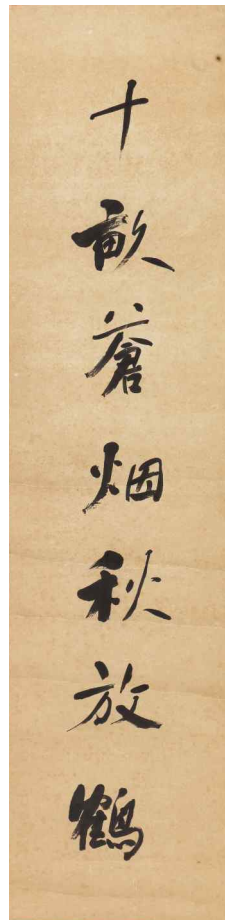 十畝蒼烟秋放鶴